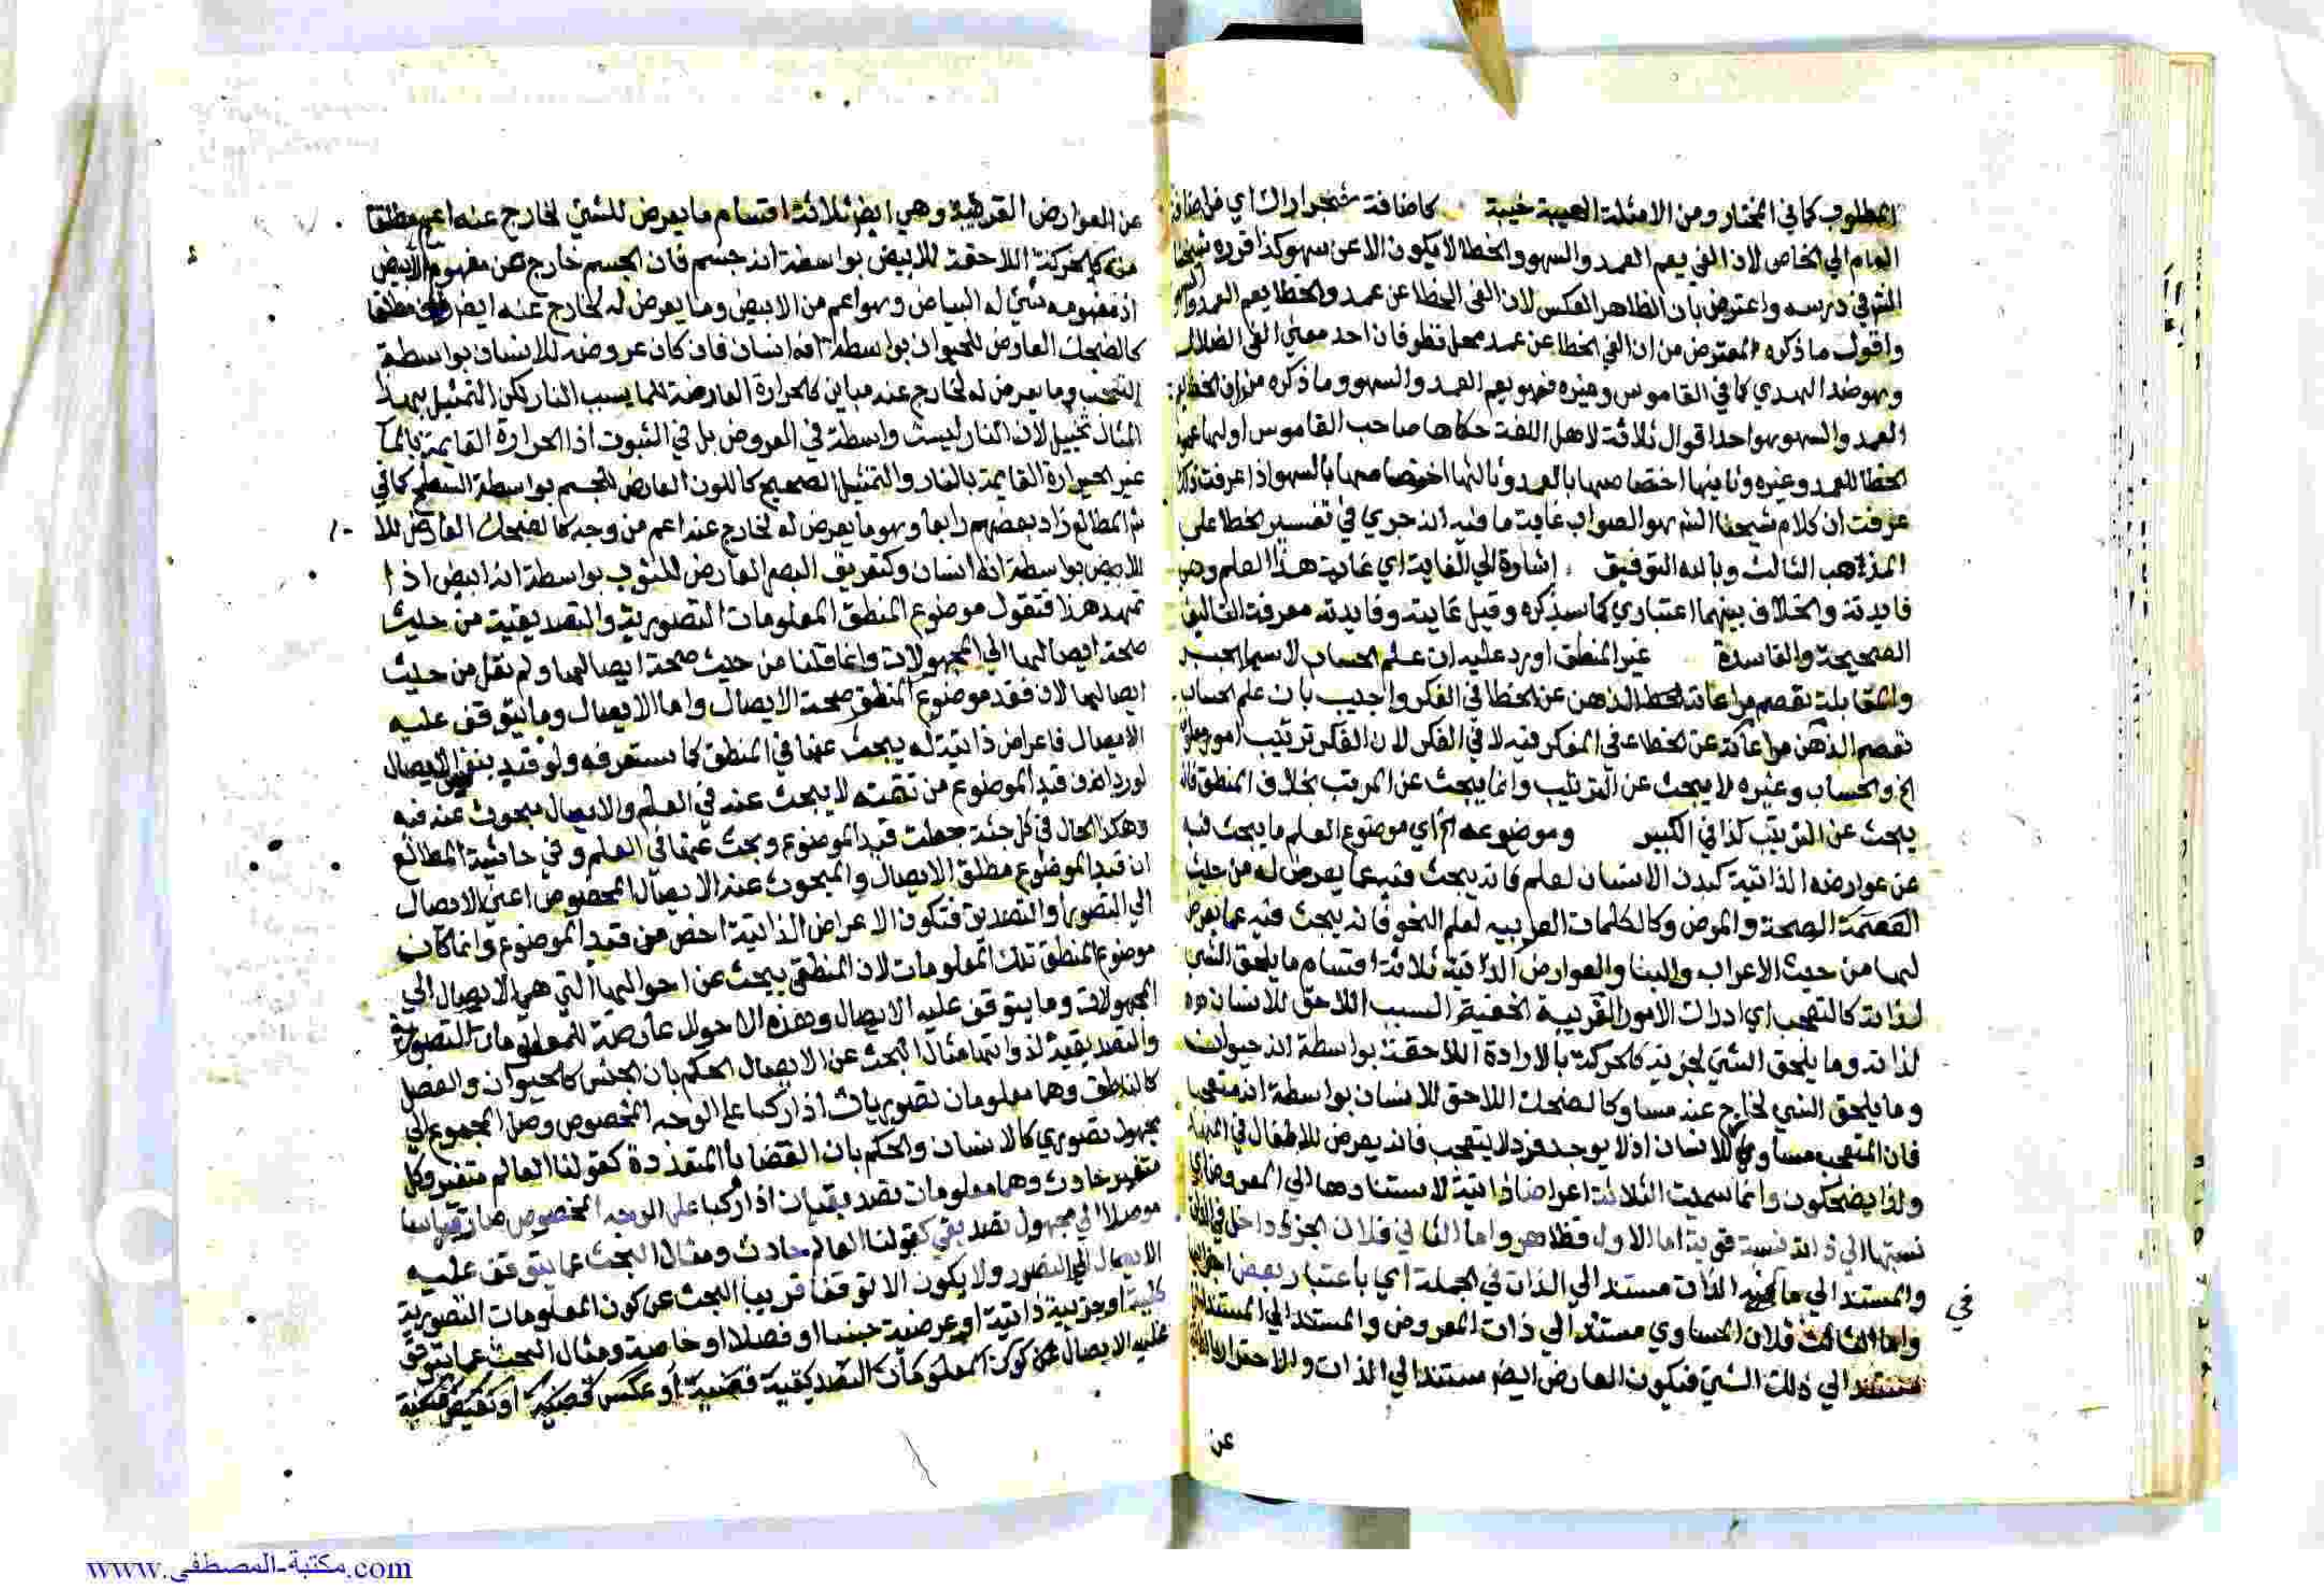 المطلوب كما في المختار ومن الامثلة الهيبة خيبة كاضافة شجر اراك اي من اضافة
العام الي الخاص لان الغي يعم العمد والسهو والخطا لا يكون الا عن سهو كذا قرره شيخنا
الش في درسه واعترض بان الظاهر العكس لان الغي الخطا عن عمد والخطا يعم العمد والسهو
واقول ما ذكره المعترض من ان الغي الخطا عن عمد محل نظر فان احد معني الغي الضلال
وهو ضد الهدي كما في القاموس وغيره فهو يعم العمد والسهو وما ذكره من ان الخطا يعم
العمد والسهو هو احد اقوال ثلاثة لاهل اللغة حكاها صاحب القاموس اولها عموم
الخطا للعمد وغيره وثانيها اختصاصها بالعمد وثالثها اختصاصها بالسهو اذا عرفت ذلك
عرفت ان كلام شيخنا الش هو الصواب غاية ما فيه انه جري في تفسير الخطا علي
المذهب الثالث وبالله التوفيق اشارة الي الغاية اي غاية هذا العلم وهي
فايدته والخلاف بينهما اعتباري كما سيذكره وقيل غايته وفايدته معرفة
الصحيحة والفاسدة غير المنطق اورد عليه ان علم الحساب لا سيما الجبر
والمقابلة تعصم مراعاته الذهن عن الخطا في الفكر واجيب بان علم الحساب
تعصم الذهن مراعاته عن الخطا في المفكر فيه لا في الفكر لان الفكر ترتيب امور
الخ والحساب وغيره لا يبحث عن الترتيب وانما يبحث عن المرتب بخلاف المنطق فانه
يبحث عن الترتيب كذا في الكبير وموضوعه الخ اي موضوع العلم ما يبحث فيه
عن عوارضه الذاتية كبدن الانسان لعلم فانه يبحث فيه عما يعرض له من حيث
الصحة والمرض وكالكلمات العربيه لعلم النحو فانه يبحث فيه عما يعرض
لها من حيث الاعراب والبنا والعوارض الذاتية ثلاثة اقسام ما يلحق الشي
لذاته كالتعجب اي ادراك الامور الغريبة الخفية السبب اللاحق للانسان
لذاته وما يلحق الشي لجزيه كالحركة بالارادة اللاحقة بواسطة انه حيوان
وما يلحق الشي لخارج عنه مساو كالضحك اللاحق للانسان بواسطة انه متعجب
فان المتعجب مساوي للانسان اذ لا يوجد فرد لا يتعجب فانه يعرض للاطفال في المهد
ولذا يضحكون وانما سميت الثلاثة اعراضا ذاتية لاستنادها الي المعروض اي
نسبتها الي ذاته نسبة قوية اما الاول فظاهر واما الثاني فلان الجزء داخل في الذات
والمستند الي ما في الذات مستند الي الذات في الجملة اي باعتبار بعض اجزائها
في
واما الثالث فلان المساوي مستند الي ذات المعروض والمستند الي المستند
مستند الي ذلك الشي فيكون العارض ايضا مستندا الي الذات والاحتراز
عن
عن العوارض الغريبة وهي ايضا ثلاثة اقسام ما يعرض للشي لخارج عنه اعم مطلقا
منه كالحركة اللاحقة للابيض بواسطة انه جسم فان الجسم خارج عن مفهوم الابيض
اذ مفهومه شي له البياض وهو اعم من الابيض وما يعرض له لخارج عنه اخص مطلقا
كالضحك العارض للحيوان بواسطة انه انسان فان كان عروضه للانسان بواسطة
التعجب وما يعرض له لخارج عنه مباين كالحرارة العارضة للما بسبب النار لكن التمثيل بهذا
المثال تخييل لان النار ليست واسطة في العروض بل في الثبوت اذ الحرارة القايمة بالما
غير الحرارة القايمة بالنار والتمثيل الصحيح كاللون العارض للجسم بواسطة السطح كما في
ش المطالع زاد بعضهم رابعا وهو ما يعرض له لخارج عنه اعم من وجه كالضحك العارض
للابيض بواسطة انه انسان وكتفريق البصر العارض للثوب بواسطة انه ابيض اذا
تمهد هذا فنقول موضوع المنطق المعلومات التصورية والتصديقية من حيث
صحة ايصالها الي المجهولات وانما قلنا من حيث صحة ايصالها ولم نقل من حيث
ايصالها لان قيد موضوع المنطق صحة الايصال واما الايصال وما يتوقف عليه
الايصال فاعراض ذاتية له يبحث عنها في المنطق كما ستعرفه ولو قيد بنفس الايصال
لورد ان قيد الموضوع من تتمته لا يبحث عنه في العلم والايصال مبحوث عنه فيه
وهكذا الحال في كل حيثية جعلت قيد الموضوع وبحث عنها في العلم وفي حاشية المطالع
ان قيد الموضوع مطلق الايصال والمبحوث عنه الايصال المخصوص اعني الايصال
الي التصور والتصديق فتكون الاعراض الذاتية اخص من قيد الموضوع وانما كان
موضوع المنطق تلك المعلومات لان المنطقي يبحث عن احوالها التي هي الايصال الي
المجهولات وما يتوقف عليه الايصال وهذه الاحوال عارضة للمعلومات التصورية
والتصديقية لذواتها مثال البحث عن الايصال الحكم بان الجنس كالحيوان والفصل
كالناطق وهما معلومان تصوريان اذا ركبا علي الوجه المخصوص وصل المجموع الي
مجهول تصوري كالانسان والحكم بان القضايا المتعددة كقولنا العالم متغير وكل
متغير حادث وهما معلومان تصديقيان اذا ركبا علي الوجه المخصوص صار قياسا
موصلا الي مجهول تصديقي كقولنا العالم حادث ومثال البحث عما يتوقف عليه
الايصال الي التصور ولا يكون الا توقفا قريبا البحث عن كون المعلومات التصورية
كلية او جزيية ذاتية او عرضية جنسا او فصلا او خاصة ومثال البحث عما يتوقف
عليه الايصال عن كون المعلومات التصديقية قضية او عكس قضية او نقيض قضية
www.مكتبة-المصطفى.com